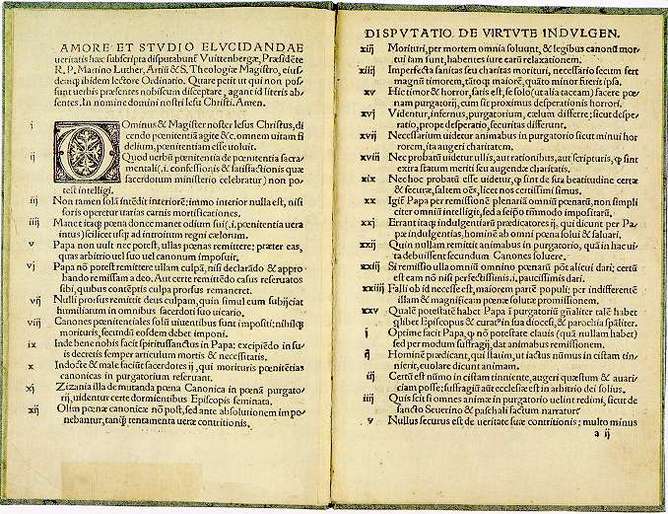 AMORE ET STVDIO ELVCIDANDAE
ueritatis hæc subscripta disputabunť Vuittenbergæ, Præsidēte
R. P. Martino Luther, Artiū & S. Theologiæ Magistro, eius-
demq̨ ibidem lectore Ordinario. Quare petit ut qui non pos-
sunt uerbis præsentes nobiscum disceptare, agant id literis ab-
sentes. In nomine domini nostri Iesu Christi. Amen.
i DOminus & Magister noster Iesus Christus, di-
cendo pœnitētiā agite &c. omnem uitam fi-
delium, pœnitentiam esse uoluit.
ij Quod uerbū pœnitentia de pœnitentia sacra-
mentali (.i. confessionis & satisfactionis quæ
sacerdotum ministerio celebratur) non po-
test intelligi.
iij Non tamen solā intēdit interiorē: immo interior nulla est, nisi
foris operetur uarias carnis mortificationes.
iiij Manet itaq̨ pœna donec manet odium sui (.i. pœnitentia uera
intus) scilicet usq̨ ad introitum regni cælorum.
v Papa non uult nec potest, ullas pœnas remittere: præter eas,
quas arbitrio uel suo uel canonum imposuit.
vj Papa nō potest remittere ullam culpā, nisi declarādo & appro-
bando remissam a deo. Aut certe remittēdo casus reseruatos
sibi, quibus contēptis culpa prorsus remaneret.
vij Nulli prorsus remittit deus culpam, quin simul eum subijciat
humiliatum in omnibus sacerdoti suo uicario.
viij Canones pœnitentiales solū uiuentibus sunt impositi: nihilq̨
morituris, secundū eosdem debet imponi.
ix Inde bene nobis facit spiritussanctus in Papa: excipiēdo in su-
is decretis semper articulum mortis & necessitatis.
x Indocte & male faciūt sacerdotes ij, qui morituris pœnitētias
canonicas in purgatorium reseruant.
xj Zizania illa de mutanda pœna Canonica in pœnā purgato-
rij, uidentur certe dormientibus Episcopis seminata.
xij Olim pœnæ canonicæ nō post, sed ante absolutionem impo-
nebantur, tanq̨ tentamenta ueræ contritionis.
DISPVTATIO DE VIRTVTE INDVLGEN.
xiij Morituri, per mortem omnia soluunt, & legibus canonū mor-
tui iam sunt, habentes iure earū relaxationem.
xiiij Imperfecta sanitas seu charitas morituri, necessario secum fert
magnū timorem, tātoq̨ maiorē, quāto minor fuerit ipsa.
xv Hic timor & horror, satis est, se solo (ut alia taceam) facere pœ-
nam purgatorij, cum sit proximus desperationis horrori.
xvj Videntur, infernus, purgatorium, cælum differre: sicut despe-
ratio, prope desperatio, securitas differunt.
xvij Necessarium uidetur animabus in purgatorio sicut minui hor-
rorem, ita augeri charitatem.
xviij Nec probatū uidetur ullis, aut rationibus, aut scripturis, q̨ sint
extra statum meriti seu augendæ charitatis.
xix Nec hoc probatū esse uidetur, q̨ sint de sua beatitudine certæ
& securæ, saltem oēs, licet nos certissimi simus.
xx Igiť Papa per remissionē plenariā omniū pœnarū, non simpli-
citer omniū intelligit, sed a seipō tm̄modo impositarū.
xxj Errant itaq̨ indulgentiarū prædicatores ij, qui dicunt per Pa-
pæ indulgentias, hominē ab omni pœna solui & saluari.
xxij Quin nullam remittit animabus in purgatorio, quā in hac ui-
ta debuissent secundum Canones soluere.
xxiij Si remissio ulla omniū omnino pœnarū pōt alicui dari; certū
est eam nō nisi perfectissimis, .i. paucissimis dari.
xxiiij Falli ob id necesse est, maiorem partē populi: per indifferentē
illam & magnificam pœnæ solutæ promissionem.
xxv Qualē potestatē habet Papa ī purgatoriū gñaliter talē habet
quilibet Episcopus & curatꝰ in sua diocesi, & parochia spāliter.
i Optime facit Papa, q̨ nō potestate clauis (quā nullam habet)
sed per modum suffragij, dat animabus remissionem.
ij Hominē prædicant, qui statim, ut iactus nūmus in cistam tin-
nierit, euolare dicunt animam.
iij Certū est nūmo in cistam tinniente, augeri quæstum & auari-
ciam posse: suffragiū aūt ecclesiæ est in arbitrio dei solius.
iiij Quis scit si omnes animæ in purgatorio uelint redimi, sicut de
sancto Seuerino & paschali factum narratur.
v Nullus securus est de ueritate suæ contritionis; multo minus
a ij